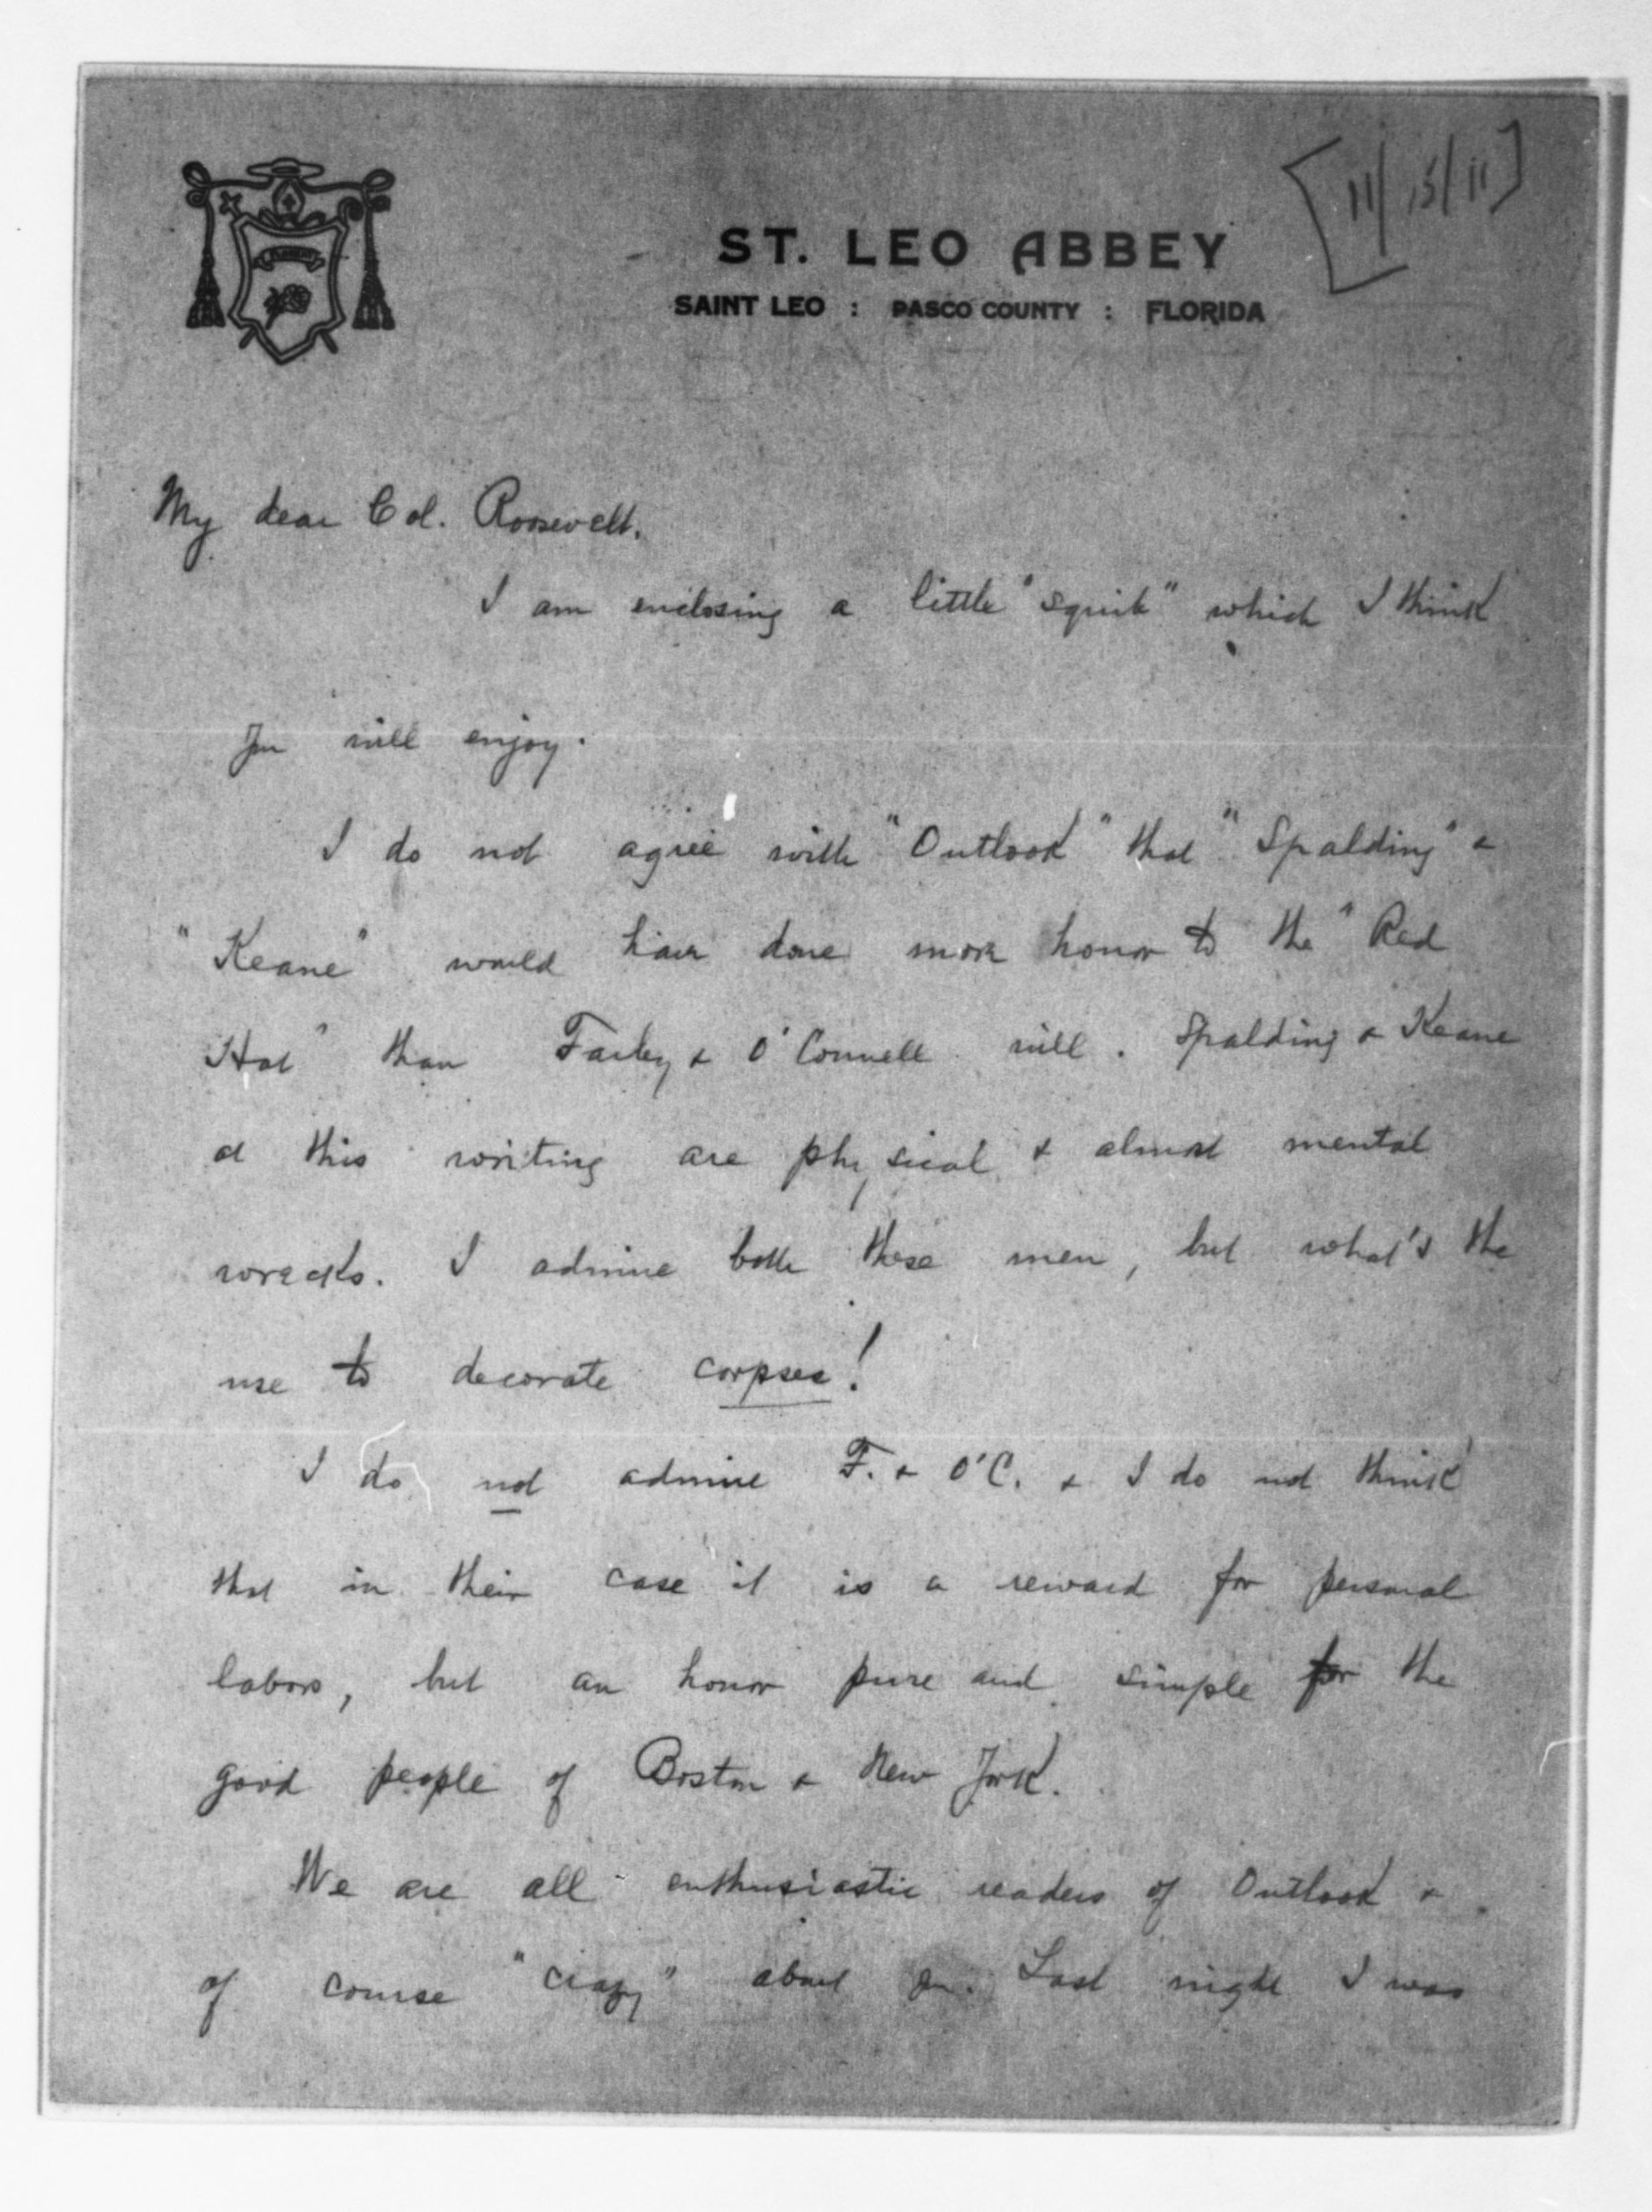 [11/15/11]
ST. LEO ABBEY
SAINT LEO : PASCO COUNTY : FLORIDA
My dear Col. Roosevelt.
I am enclosing a little "squib" which I think
you will enjoy.
I do not agree with "Outlook" that "Spalding" &
"Keane" would have done more honor to the "Red
Hat" than Farley & O'Connell will. Spalding & Keane
at this writing are physical & almost mental
wrecks. I admire both these men, but what's the
use to decorate corpses!
I do not admire F. & O'C. & I do not think
that in their case it is a reward for personal
labors, but an honor pure and simple for the
good people of Boston & New York.
We are all enthusiastic readers of Outlook &
of course "crazy" about you. Last night I was